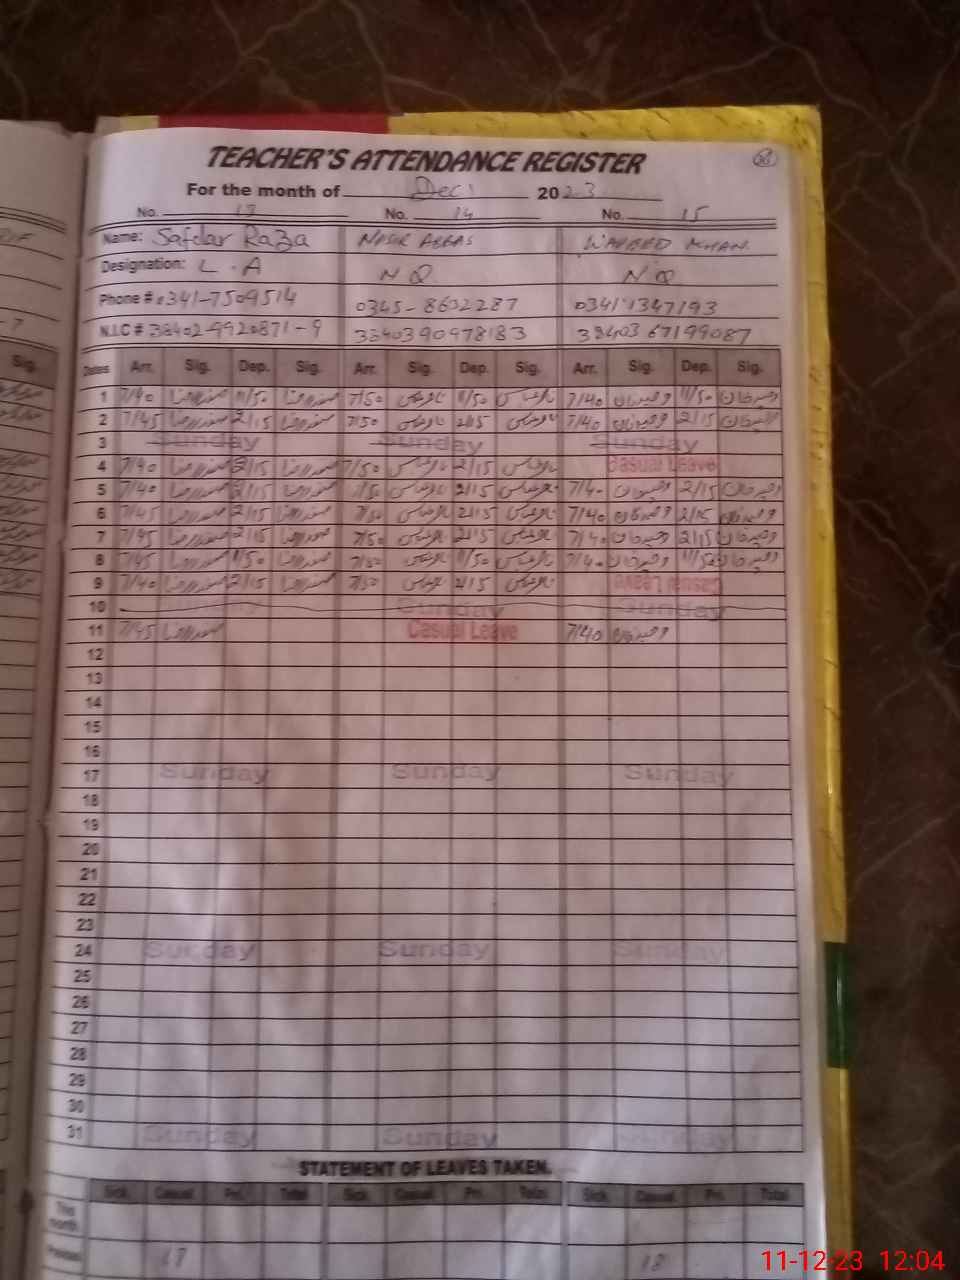 TEACHER'S ATTENDANCE REGISTER 
For the month of Dec 2023
No. 13 No. 14 No. 15
Name: Safdar Raza NASIR ABBAS WAHEED KHAN
Designation: L.A N.Q N.Q
Phone # 0341-7509514 0345-8602287 03411347193
N.I.C # 38402-9920871-9 3840390978183 3840367199087
Sig.
Dates Arr. Sig. Dep. Sig. Arr. Sig. Dep. Sig. Arr. Sig. Dep. Sig.
1 7/40 صفدر رضا 11/50 صفدر رضا 7/50 ناصر عباس 11/50 ناصر عباس 7/40 وحید خان 11/50 وحید خان
2 7/45 صفدر رضا 2/15 صفدر رضا 7/50 ناصر عباس 2/15 ناصر عباس 7/40 وحید خان 2/15 وحید خان
3 Sunday Sunday Sunday
4 7/40 صفدر رضا 2/15 صفدر رضا 7/50 ناصر عباس 2/15 ناصر عباس Casual Leave
5 7/40 صفدر رضا 2/15 صفدر رضا 7/50 ناصر عباس 2/15 ناصر عباس 7/40 وحید خان 2/15 وحید خان
6 7/45 صفدر رضا 2/15 صفدر رضا 7/50 ناصر عباس 2/15 ناصر عباس 7/40 وحید خان 2/15 وحید خان
7 7/45 صفدر رضا 2/15 صفدر رضا 7/50 ناصر عباس 2/15 ناصر عباس 7/40 وحید خان 2/15 وحید خان
8 7/45 صفدر رضا 11/50 صفدر رضا 7/50 ناصر عباس 11/50 ناصر عباس 7/40 وحید خان 11/50 وحید خان
9 7/40 صفدر رضا 2/15 صفدر رضا 7/50 ناصر عباس 2/15 ناصر عباس Casual Leave
10 Sunday Sunday Sunday
11 7/45 صفدر رضا Casual Leave 7/40 وحید خان
12
13
14
15
16
17 Sunday Sunday Sunday
18
19
20
21
22
23
24 Sunday Sunday Sunday
25
26
27
28
29
30
31 Sunday Sunday Sunday
STATEMENT OF LEAVES TAKEN.
Sick. Casual. Pri. Total Sick. Casual. Pri. Total. Sick. Casual. Pri. Total
This month.
Previous 18
11-12-23 12:04